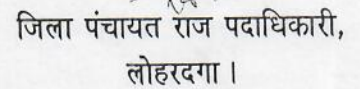 जिला पंचायत राज पदाधिकारी,
लोहरदगा ।